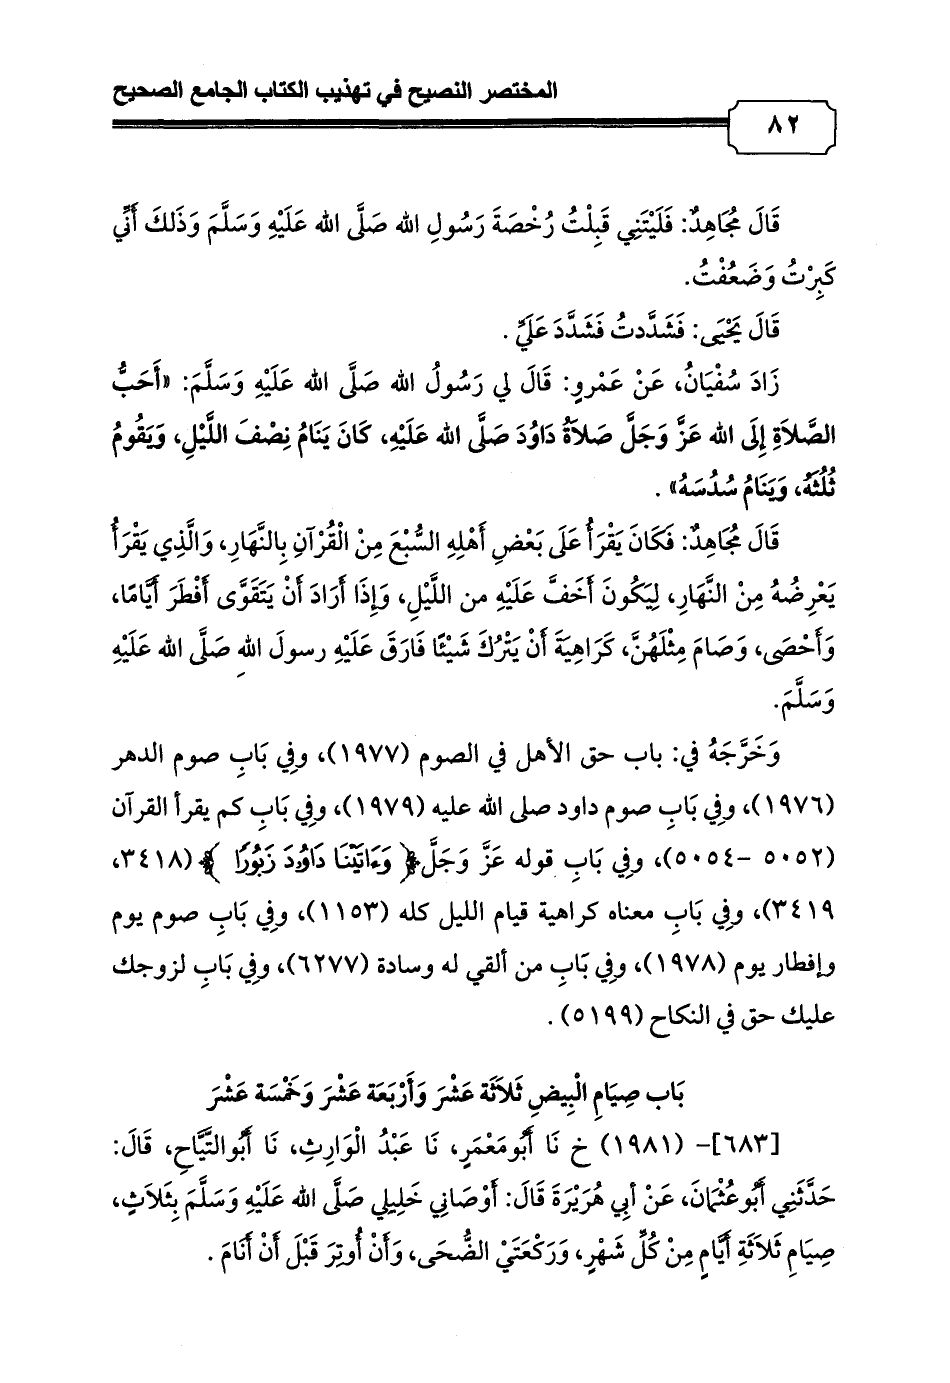 المختصر النصيح في تهذيب الكتاب الجامع الصحيح
٨٢
قَالَ مُجَاهِدٌ: فَلَيْتَنِي قَبِلْتُ رُخْصَةَ رَسُولِ الله صَلَّى الله عَلَيْهِ وَسَلَّمَ وَذَلكَ أَنِّي
كَبِرْتُ وَضَعُفْتُ.
قَالَ يَحْيَى: فَشَدَّدتُ فَشَدَّدَ عَلَيَّ .
زَادَ سُفْيَانُ، عَنْ عَمْروٍ: قَالَ لي رَسُولُ الله صَلَّى الله عَلَيْهِ وَسَلَّمَ: «أَحَبُّ
الصَّلاَةِ إِلَى الله عَزَّ وَجَلَّ صَلاَةُ دَاوُدَ صَلَّى الله عَلَيْهِ، كَانَ يَنَامُ نِصْفَ اللَّيْلِ، وَيَقُومُ
ثُلُثَهُ، وَيَنَامُ سُدُسَهُ» .
قَالَ مُجَاهِدٌ: فَكَانَ يَقْرَأُ عَلَى بَعْضِ أَهْلِهِ السُّبْعَ مِنْ الْقُرْآنِ بِالنَّهَارِ، وَالَّذِي يَقْرَأُ
يَعْرِضُهُ مِنْ النَّهَارِ، لِيَكُونَ أَخَفَّ عَلَيْهِ من اللَّيْلِ، وَإِذَا أَرَادَ أَنْ يَتَقَوَّى أَفْطَرَ أَيَّامًا،
وَأَحْصَى، وَصَامَ مِثْلَهُنَّ، كَرَاهِيَةَ أَنْ يَتْرُكَ شَيْئًا فَارَقَ عَلَيْهِ رسولَ اللهِ صَلَّى الله عَلَيْهِ
وَسَلَّمَ.
وَخَرَّجَهُ في: باب حق الأهل في الصوم (١٩٧٧)، وفِي بَابِ صوم الدهر
(١٩٧٦)، وفِي بَابِ صوم داود صلى الله عليه (١٩٧٩)، وفِي بَابِ كم يقرأ القرآن
(٥٠٥٢ -٥٠٥٤)، وفِي بَابِ قوله عَزَّ وَجَلَّ ﴿وَءَاتَيْنَا دَاوُدَ زَبُورًا ﴾ (٣٤١٨،
٣٤١٩)، وفِي بَابِ معناه كراهية قيام الليل كله (١١٥٣)، وفِي بَابِ صوم يوم
وإفطار يوم (١٩٧٨)، وفِي بَابِ من ألقي له وسادة (٦٢٧٧)، وفِي بَابِ لزوجك
عليك حق في النكاح (٥١٩٩) .
بَاب صِيَامِ الْبِيضِ ثَلاَثَة عَشْرَ وَأَرْبَعَة عَشْرَ وَخَمْسَة عَشْرَ
[٦٨٣]- (١٩٨١) خ نَا أَبُومَعْمَرٍ، نَا عَبْدُ الْوَارِثِ، نَا أَبُوالتَّيَّاحِ، قَالَ:
حَدَّثَنِي أَبُوعُثْمَانَ، عَنْ أبي هُرَيْرَةَ قَالَ: أَوْصَانِي خَلِيلِي صَلَّى الله عَلَيْهِ وَسَلَّمَ بِثَلاَثٍ،
صِيَامِ ثَلاَثَةِ أَيَّامٍ مِنْ كُلِّ شَهْرٍ، وَرَكْعَتَيْ الضُّحَى، وَأَنْ أُوتِرَ قَبْلَ أَنْ أَنَامَ .